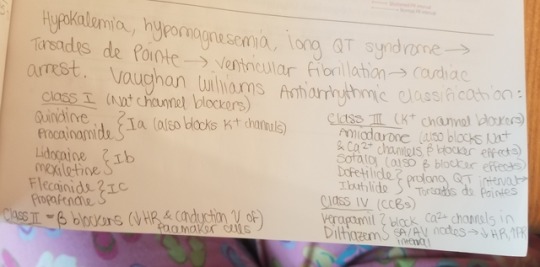 Hypokalemia, hypomagnesemia, long QT syndrome →
Torsades de Pointe → ventricular fibrillation → cardiac
arrest. Vaughan Williams Antiarrhythmic classification:
Class I (Na+ channel blockers)
Quinidine
Procainamide } Ia (also blocks K+ channels)
Lidocaine
mexiletine } Ib
Flecainide
Propafenone } IC
Class II = β blockers (↓HR & conduction V of)
pacemaker cells
Class III (K+ channel blockers)
Amiodarone (also blocks Na+
& Ca2+ channels, β blocker effects)
Sotalol (also β blocker effects)
Dofetilide
Ibutilide } prolong QT interval →
Torsades de Pointes
Class IV (CCBs)
Verapamil
Diltiazem } block Ca2+ channels in
SA/AV nodes → ↓HR, ↑PR
interval